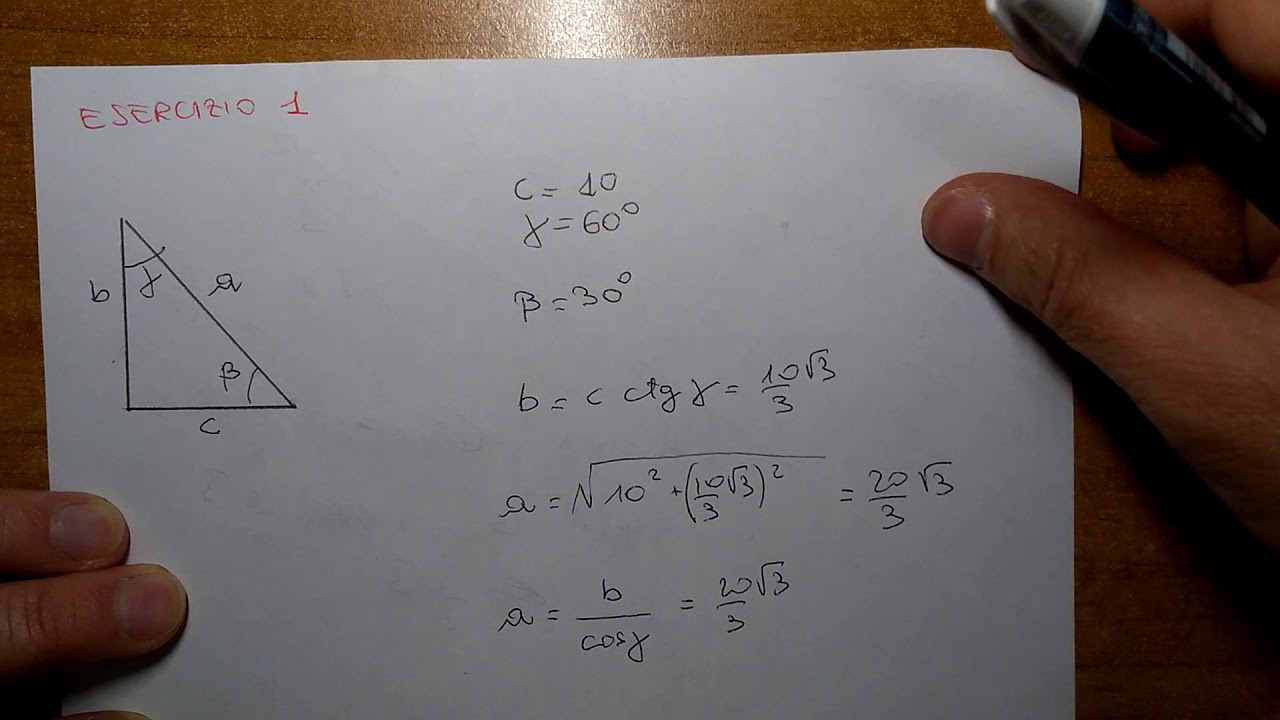 ESERCIZIO 1
b γ a
β
c
c = 10
γ = 60°
β = 30°
b = c ctg γ = 10√3/3
a = √10² + (10/3 √3)² = 20/3 √3
a = b/cosγ = 20√3/3